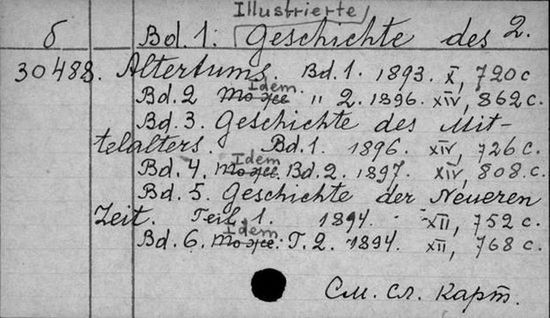 Illustrierte
б Bd. 1. Geschichte des 2.
30488. Altertums. Bd. 1. 1893. X, 720 с.
Idem
Bd. 2 То же " 2. 1896. XIV, 862 с.
Bd. 3. Geschichte des Mit-
telalters. Bd. 1. 1896. XIV, 726 с.
Idem
Bd. 4. То же. Bd. 2. 1897. XIV, 808 с.
Bd. 5. Geschichte der Neueren
Zeit. Teil. 1. 1894. XII, 752 с.
Idem
Bd. 6. То же. T. 2. 1894. XII, 768 с.
См. сл. карт.